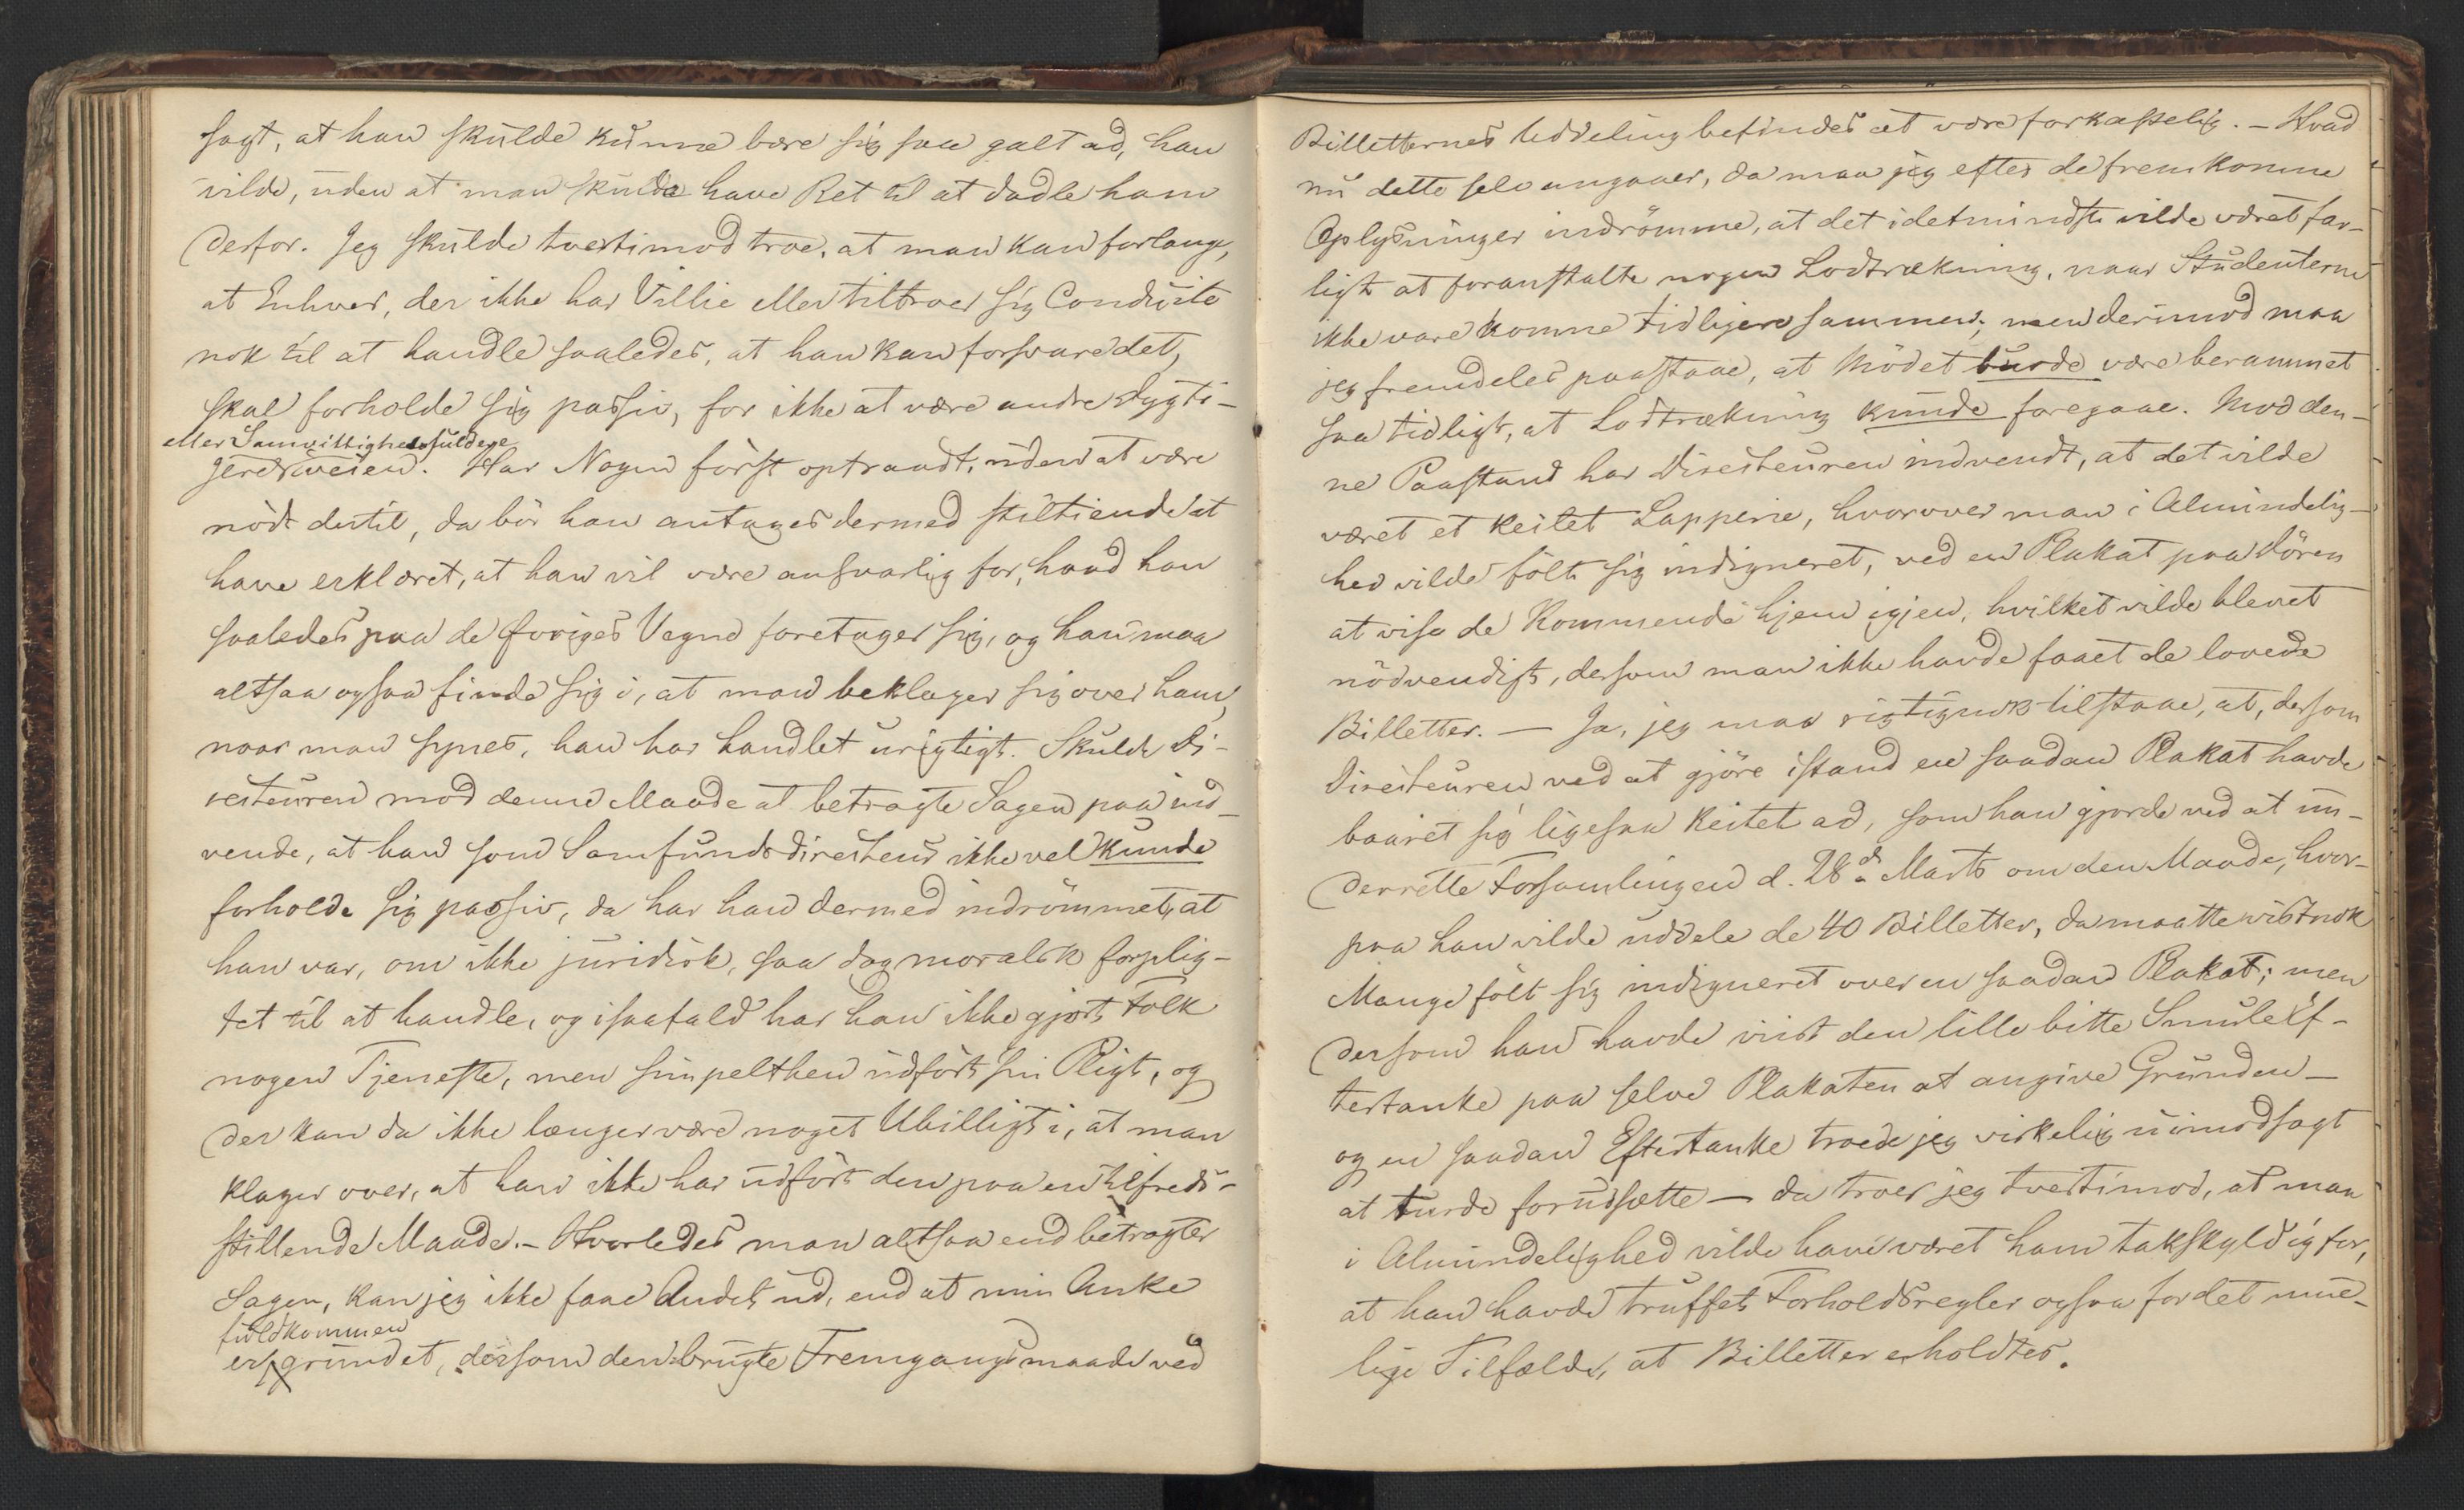 sagt, at han skulde kunne bære sig saa galt ad, han
vilde, uden at man skulde have Ret til at dadle ham
derfor. Jeg skulde tvertimod troe, at man kan forlange,
at Enhver, der ikke har Villie eller tiltroer sig Conduite
nok til at handle saaledes, at han kan forsvare det,
skal forholde sig passiv, for ikke at være andre dygti-
eller Samvittighedsfuldere
gere i veien. Har Nogen först optraadt, uden at være
nödt dertil, da bör han antages dermed stiltiende at
have erklæret, at han vil være ansvarlig for, hvad han
saaledes paa de Övriges Vegne foretager sig, og han maa
altsaa ogsaa finde sig i, at man beklager sig over ham,
naar man synes, han har handlet urigtigt. Skulde Di-
recteuren mod denne Maade at betragte Sagen paa ind-
vende, at han som Samfundsdirecteur ikke vel kunde
forholde sig passiv, da har han dermed indrömmet, at
han var, om ikke juridisk, saa dog moralsk forplig-
tet til at handle, og isaafald har han ikke gjort Folk
nogen Tjeneste, men simpelthen udfört sin Pligt, og
der kan da ikke længer være noget Ubilligt i, at man
klager over, at han ikke har udfört den paa en tilfreds-
stillende Maade. – Hvorledes man altsaa end betragter
Sagen, kan jeg ikke faae Andet ud, end at min Anke
fuldkommen
er grundet, dersom den brugte Fremgangsmaade ved
Billetternes Uddeling befindes at være forkastelig. – Hvad
nu dette selv angaaer, da maa jeg efter de fremkomne
Oplysninger indrömme, at det idetmindste vilde været far-
ligt at foranstalte nogen Lodtrækning, naar Studenterne
ikke vare komne tidligere sammen; men derimod maa
jeg fremdeles paastaae, at Mödet burde være berammet
saa tidligt, at Lodtrækning kunde foregaae. Mod den-
ne Paastand har Directeuren indvendt, at det vilde
været et keitet Lapperie, hvorover man i Almindelig-
hed vilde fölt sig indigneret, ved en Plakat paa Dören
at vise de Kommende hjem igjen, hvilket vilde blevet
nödvendigt, dersom man ikke havde faaet de lovede
Billetter. – Ja, jeg maa rigtignok tilstaae, at, dersom
Directeuren ved at gjöre istand en saadan Plakat havde
baaret sig ligesaa keitet ad, som han gjorde ved at un-
derrette Forsamlingen d. 28de Marts om den Maade, hvor-
paa han vilde uddele de 40 Billetter, da maatte vistnok
Mange fölt sig indigneret over en saadan Plakat; men
dersom han havde viist den lille bitte Smule Ef-
tertanke paa selve Plakaten at angive Grunden –
og en saadan Eftertanke troede jeg virkelig uimodsagt
at turde forudsætte – da troer jeg tvertimod, at man
i Almindelighed vilde have været ham takskyldig for,
at han havde truffet Forholdsregler ogsaa for det mue-
lige Tilfælde, at Billetter erholdtes.